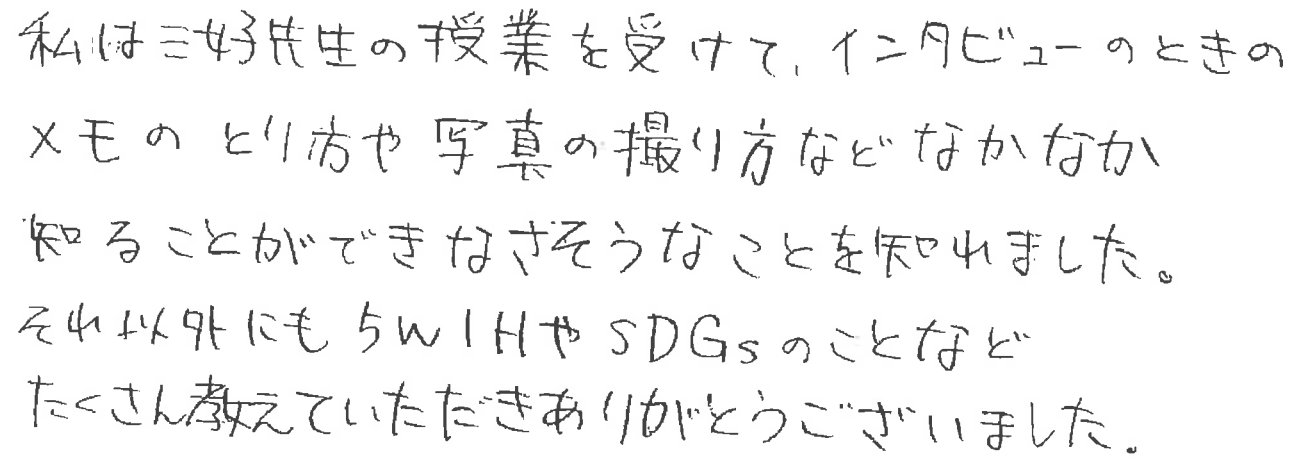 私は三好先生の授業を受けて、インタビューのときの
メモのとり方や写真の撮り方などなかなか
知ることができなさそうなことを知れました。
それ以外にも5W1HやSDGsのことなど
たくさん教えていただきありがとうございました。